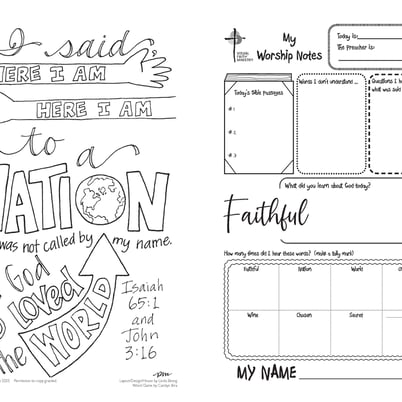 I said,
HERE I AM
HERE I AM
to a
NATION
was not called by my name.
God
loved
the WORLD
Isaiah
65:1
and
John
3:16
Permission to copy granted.
My
Worship Notes
Today is:
The Preacher is:
Today's Bible Passages
#1
#2
#3
Words I don't understand ...
Questions I
what was said
What did you learn about God today?
Faithful
How many times did I hear these words? (make a tally mark)
Faithful
Nation
Works
Wine
Chosen
Sacred
MY NAME